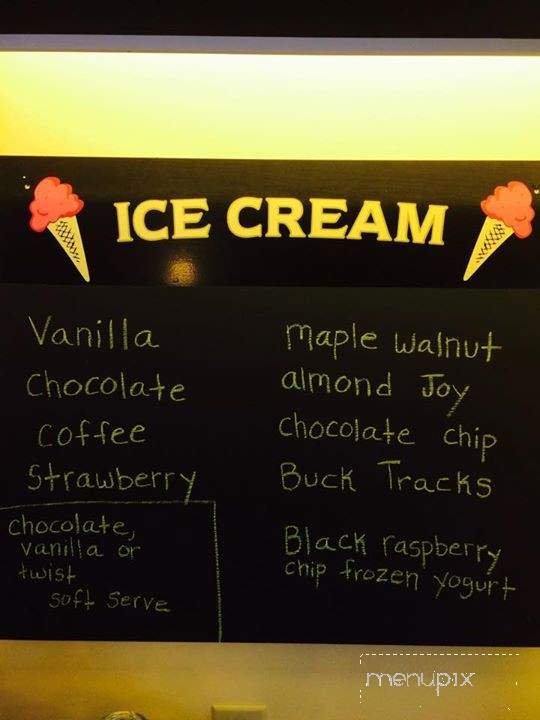 ICE CREAM
Vanilla
Chocolate
Coffee
Strawberry
chocolate,
vanilla or
twist
soft serve
maple walnut
almond Joy
chocolate chip
Buck Tracks
Black raspberry
chip frozen yogurt
menupix